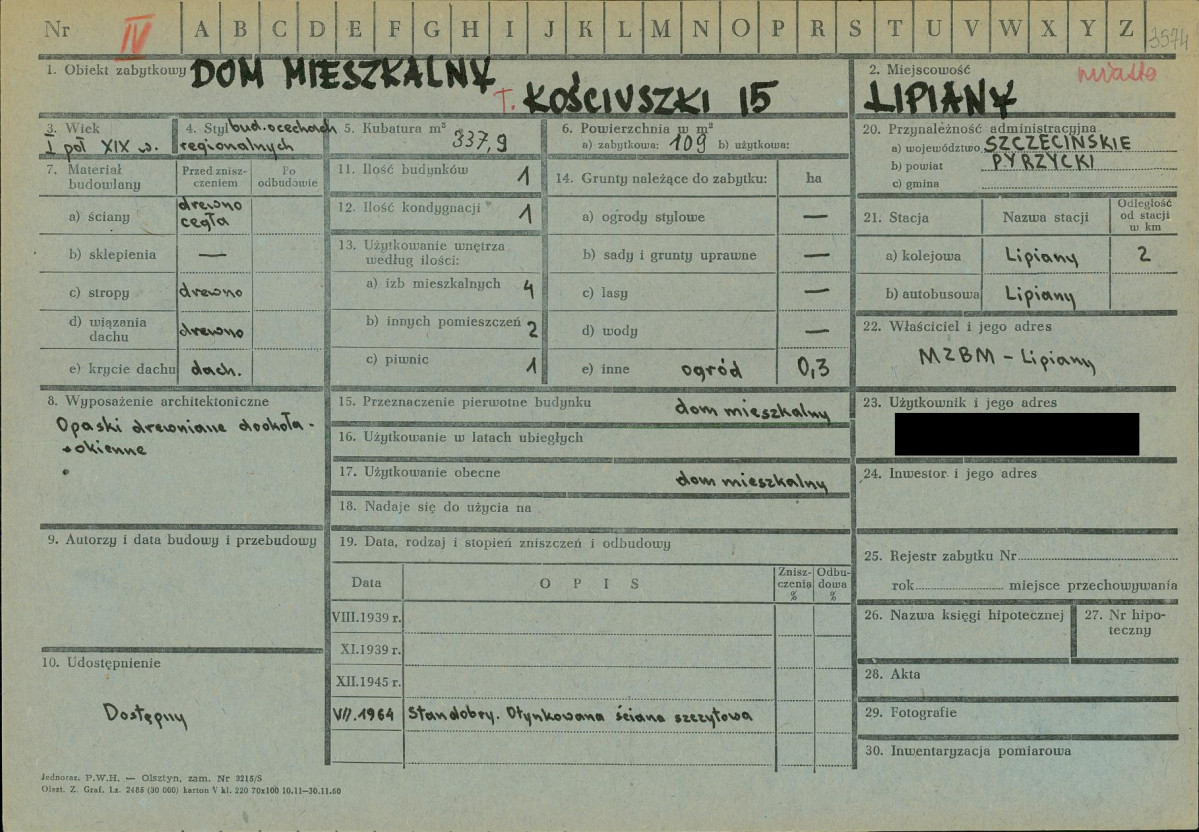 Nr IV A B C D E F G H I J K L M N O P R S T U V W X Y Z 3574
1. Obiekt zabytkowy DOM MIESZKALNY
T. KOŚCIUSZKI 15
2. Miejscowość miasto
LIPIANY
3. Wiek
I poł XIX w.
4. Styl bud. o cechach
regionalnych
5. Kubatura m³
337,9
6. Powierzchnia w m²
a) zabytkowa: 109 b) użytkowa:
7. Materiał budowlany
Przed zniszczeniem
Po odbudowie
a) ściany drewno
cegła
b) sklepienia —
c) stropy drewno
d) wiązania dachu drewno
e) krycie dachu dach.
11. Ilość budynków 1
12. Ilość kondygnacji 1
13. Użytkowanie wnętrza
według ilości:
a) izb mieszkalnych 4
b) innych pomieszczeń 2
c) piwnic 1
14. Grunty należące do zabytku: ha
a) ogrody stylowe —
b) sady i grunty uprawne —
c) lasy —
d) wody —
e) inne ogród 0,3
20. Przynależność administracyjna
a) województwo SZCZECIŃSKIE
b) powiat PYRZYCKI
c) gmina
21. Stacja Nazwa stacji Odległość
od stacji
w km
a) kolejowa Lipiany 2
b) autobusowa Lipiany
22. Właściciel i jego adres
MZBM - Lipiany
8. Wyposażenie architektoniczne
Opaski drewniane dookoła -
- okienne
15. Przeznaczenie pierwotne budynku dom mieszkalny
16. Użytkowanie w latach ubiegłych
17. Użytkowanie obecne dom mieszkalny
18. Nadaje się do użycia na
23. Użytkownik i jego adres
24. Inwestor i jego adres
9. Autorzy i data budowy i przebudowy
10. Udostępnienie
Dostępny
19. Data, rodzaj i stopień zniszczeń i odbudowy
Data OPIS Zniszczenia % Odbudowa %
VIII.1939 r.
XI.1939 r.
XII.1945 r.
VII.1964 Stan dobry. Otynkowana ściana szczytowa
25. Rejestr zabytku Nr
rok miejsce przechowywania
26. Nazwa księgi hipotecznej
27. Nr hipoteczny
28. Akta
29. Fotografie
30. Inwentaryzacja pomiarowa
Jednoraz. P.W.H. — Olsztyn, zam. Nr 3215/S
Olszt. Z. Graf. Lz. 2485 (30 000) karton V kl. 220 70x100 10.11—30.11.60